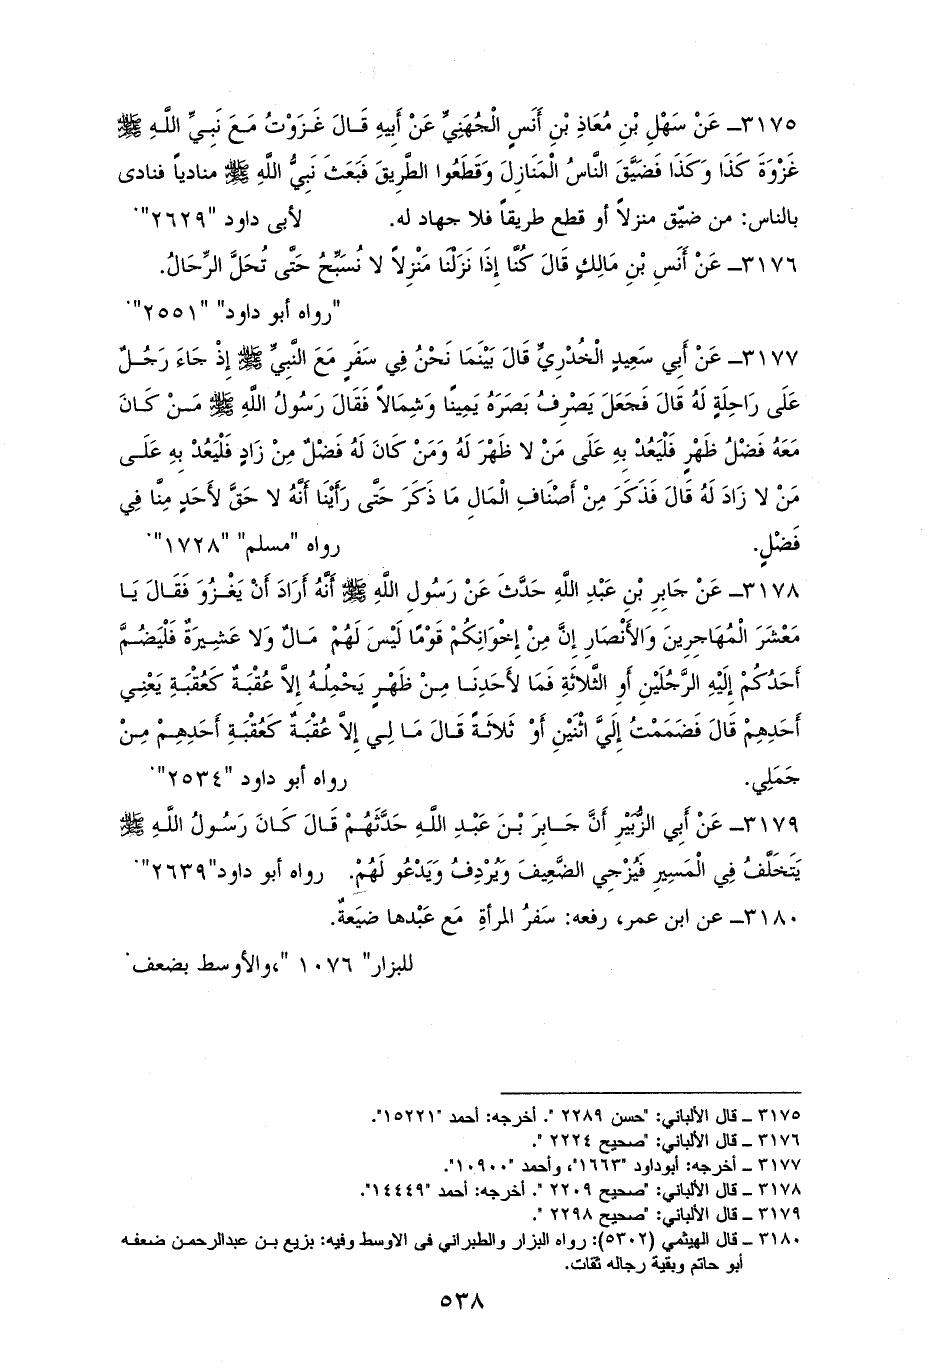 ٣١٧٥ــ عَنْ سَهْلِ بْنِ مُعَاذِ بْنِ أَنَسٍ الْجُهَنِيِّ عَنْ أَبِيهِ قَالَ غَزَوْتُ مَعَ نَبِيِّ اللَّهِ ﷺ
غَزْوَةَ كَذَا وَكَذَا فَضَيَّقَ النَّاسُ الْمَنَازِلَ وَقَطَعُوا الطَّرِيقَ فَبَعَثَ نَبِيُّ اللَّهِ ﷺ منادياً فنادى
بالناس: من ضيّق منزلاً أو قطع طريقاً فلا جهاد له. لأبى داود "٢٦٢٩".
٣١٧٦ــ عَنْ أَنَسِ بْنِ مَالِكٍ قَالَ كُنَّا إِذَا نَزَلْنَا مَنْزِلاً لا نُسَبِّحُ حَتَّى تُحَلَّ الرِّحَالُ.
"رواه أبو داود" "٢٥٥١".
٣١٧٧ــ عَنْ أَبِي سَعِيدٍ الْخُدْرِيِّ قَالَ بَيْنَمَا نَحْنُ فِي سَفَرٍ مَعَ النَّبِيِّ ﷺ إِذْ جَاءَ رَجُلٌ
عَلَى رَاحِلَةٍ لَهُ قَالَ فَجَعَلَ يَصْرِفُ بَصَرَهُ يَمِينًا وَشِمَالاً فَقَالَ رَسُولُ اللَّهِ ﷺ مَنْ كَانَ
مَعَهُ فَضْلُ ظَهْرٍ فَلْيَعُدْ بِهِ عَلَى مَنْ لا ظَهْرَ لَهُ وَمَنْ كَانَ لَهُ فَضْلٌ مِنْ زَادٍ فَلْيَعُدْ بِهِ عَلَى
مَنْ لا زَادَ لَهُ قَالَ فَذَكَرَ مِنْ أَصْنَافِ الْمَالِ مَا ذَكَرَ حَتَّى رَأَيْنَا أَنَّهُ لا حَقَّ لأَحَدٍ مِنَّا فِي
فَضْلٍ. رواه "مسلم" "١٧٢٨".
٣١٧٨ــ عَنْ جَابِرِ بْنِ عَبْدِ اللَّهِ حَدَّثَ عَنْ رَسُولِ اللَّهِ ﷺ أَنَّهُ أَرَادَ أَنْ يَغْزُوَ فَقَالَ يَا
مَعْشَرَ الْمُهَاجِرِينَ وَالأَنْصَارِ إِنَّ مِنْ إِخْوَانِكُمْ قَوْمًا لَيْسَ لَهُمْ مَالٌ وَلا عَشِيرَةٌ فَلْيَضُمَّ
أَحَدُكُمْ إِلَيْهِ الرَّجُلَيْنِ أَوِ الثَّلاثَةِ فَمَا لأَحَدِنَا مِنْ ظَهْرٍ يَحْمِلُهُ إِلاَّ عُقْبَةٌ كَعُقْبَةِ يَعْنِي
أَحَدِهِمْ قَالَ فَضَمَمْتُ إِلَيَّ اثْنَيْنِ أَوْ ثَلاثَةً قَالَ مَا لِي إِلاَّ عُقْبَةٌ كَعُقْبَةِ أَحَدِهِمْ مِنْ
جَمَلِي. رواه أبو داود "٢٥٣٤".
٣١٧٩ــ عَنْ أَبِي الزُّبَيْرِ أَنَّ جَابِرَ بْنَ عَبْدِ اللَّهِ حَدَّثَهُمْ قَالَ كَانَ رَسُولُ اللَّهِ ﷺ
يَتَخَلَّفُ فِي الْمَسِيرِ فَيُزْجِي الضَّعِيفَ وَيُرْدِفُ وَيَدْعُو لَهُمْ. رواه أبو داود"٢٦٣٩".
٣١٨٠ــ عن ابن عمر، رفعه: سَفرُ المرأةِ مَع عَبْدها ضيَعةٌ.
للبزار" ١٠٧٦ "،والأوسط بضعف.
٣١٧٥ ــ قال الألباني: "حسن ٢٢٨٩ ". أخرجه: أحمد "١٥٢٢١".
٣١٧٦ ــ قال الألباني: "صحيح ٢٢٢٤ ".
٣١٧٧ ــ أخرجه: أبوداود "١٦٦٣"، وأحمد "١٠٩٠٠".
٣١٧٨ ــ قال الألباني: "صحيح ٢٢٠٩ ". أخرجه: أحمد "١٤٤٤٩".
٣١٧٩ ــ قال الألباني: "صحيح ٢٢٩٨ ".
٣١٨٠ ــ قال الهيثمي (٥٣٠٢): رواه البزار والطبراني فى الاوسط وفيه: بزيع بن عبدالرحمن ضعفه
أبو حاتم وبقية رجاله ثقات.
٥٣٨